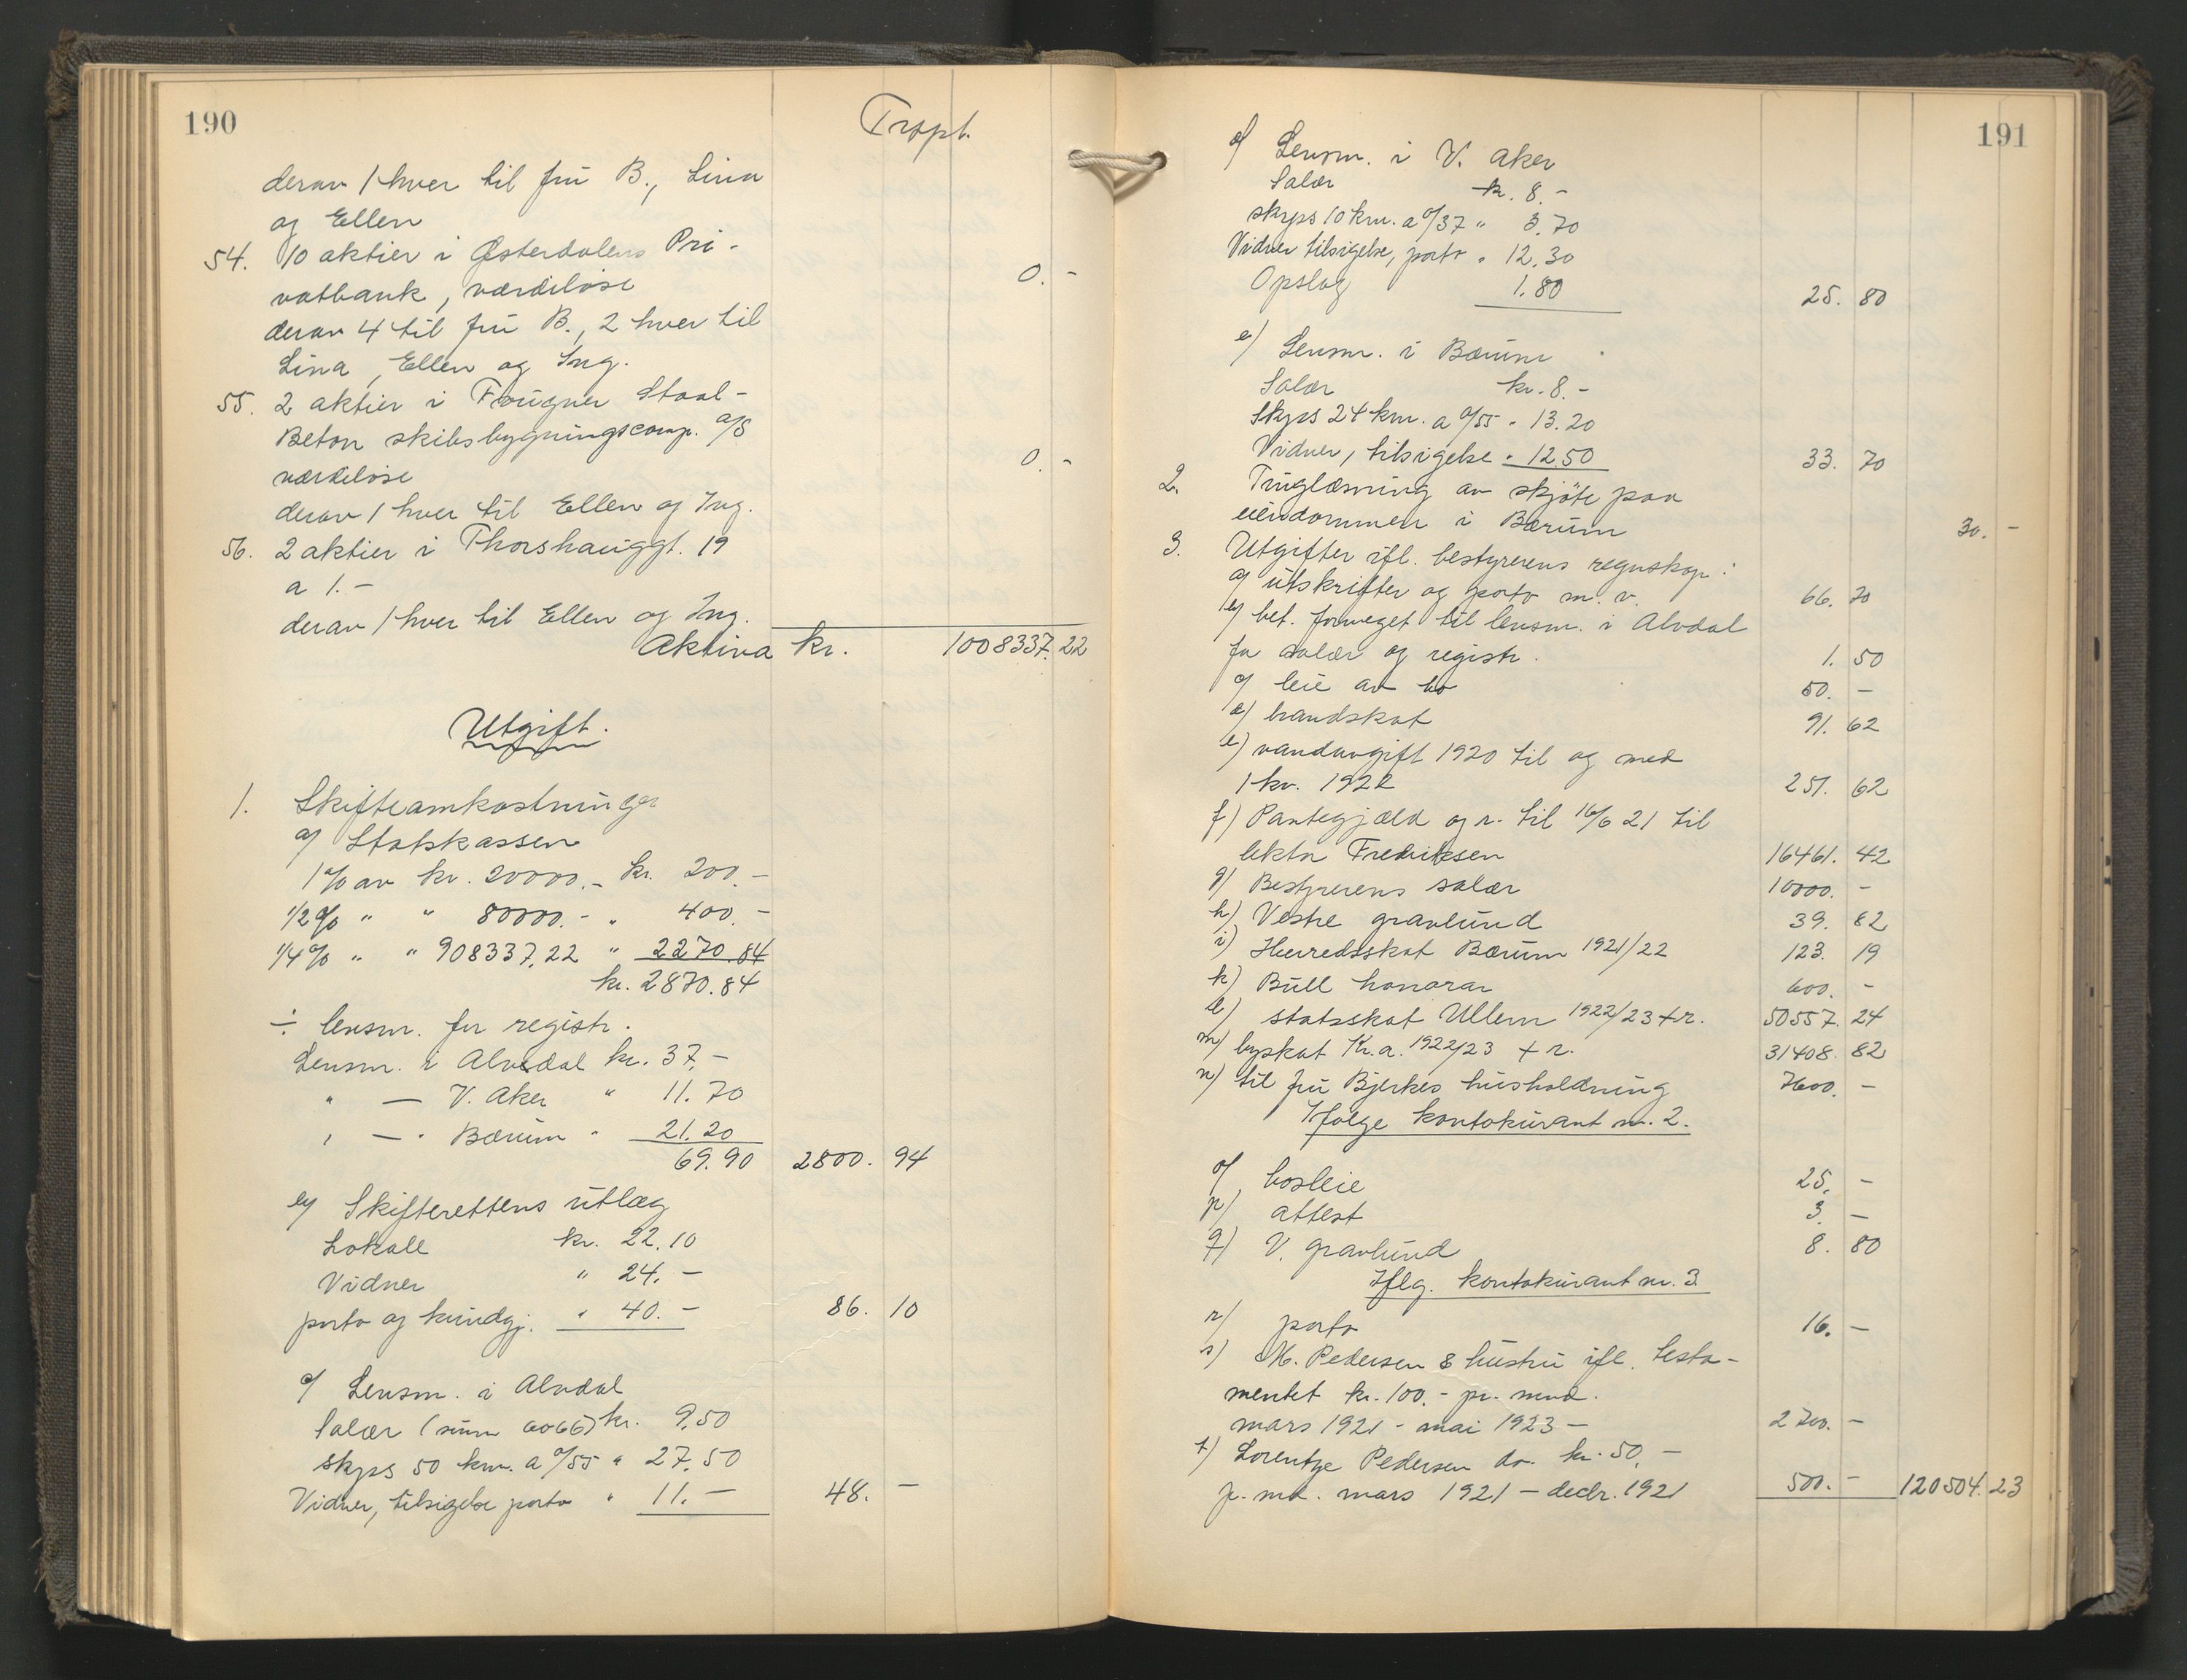 190
Trspt.
derav 1 hver til fru B., Lina
og Ellen
54. 10 aktier i Østerdalens Pri-
vatbank, værdiløse 0. -
derav 4 til fru B., 2 hver til
Lina, Ellen og Ing.
55. 2 aktier i Fougner Staal-
Beton skibsbygningscomp. A/S
værdiløse 0. -
derav 1 hver til Ellen og Ing.
56. 2 aktier i Thorshauggt. 19
a 1. -
derav 1 hver til Ellen og Ing.
Aktiva kr. 1008337.22
Utgift.
1. Skifteomkostninger
a/ Statskassen
1% av kr. 20000.- kr. 200.-
1/2% " " 80000.- " 400.-
1/4% " " 908337.22 " 2270.84
kr. 2870.84
÷ lensm. for registr.
Lensm. i Alvdal kr. 37.-
" — V. Aker " 11.70
" — " Bærum " 21.20
69.90 2800. 94
b/ Skifterettens utlæg
Lokale kr. 22.10
Vidner " 24.-
porto og kundgj. " 40.- 86. 10
c/ Lensm. i Alvdal
Salær (sum 6066) kr. 9.50
skyss 50 km. a 0/55 " 27.50
Vidner, tilsigelse porto " 11.- 48. -
191
d/ Lensm. i V. Aker
Salær kr. 8.-
skyss 10 km. a 0/37 " 3.70
Vidner tilsigelse, porto " 12.30
Opslag 1.80 25. 80
e/ Lensm. i Bærum
Salær kr. 8.-
Skyss 24 km. a 0/55 " 13.20
Vidner, tilsigelse " 12.50 33. 70
2. Tinglæsning av skjöte paa
eiendommen i Bærum 30. -
3. Utgifter ifl. bestyrerens regnskap:
a/ utskrifter og porto m. v. 66. 20
b/ bet. forweget til lensm. i Alvdal
for salær og registr. 1. 50
c/ leie av bo 50. -
d/ brandskat 91. 62
e) vandavgift 1920 til og med
1 kv. 1922 251. 62
f) Pantegjæld og r. til 16/6 21 til
lektor Fredriksen 16461. 42
g) Bestyrerens salær 10000. -
h) Vestre gravlund 39. 82
i) Herredsskat Bærum 1921/22 123. 19
k) Bull honorar 600. -
l) statsskat Ullern 1922/23 + r. 50557. 24
m) byskat Kr.a. 1922/23 + r. 31408. 82
n) til fru Bjerkes husholdning 7600. -
Ifølge kontokurant nr. 2.
o/ bosleie 25. -
p/ attest 3. -
q/ V. gravlund 8. 80
Iflg. kontokurant nr. 3
r/ porto 16. -
s) M. Pedersen & hustru ifl. testa-
mentet kr. 100.- pr. mnd.
mars 1921 - mai 1923 - 2700. -
t) Lorentze Pedersen do. kr. 50.-
p. md. mars 1921 - decbr. 1921 500. - 120504.23